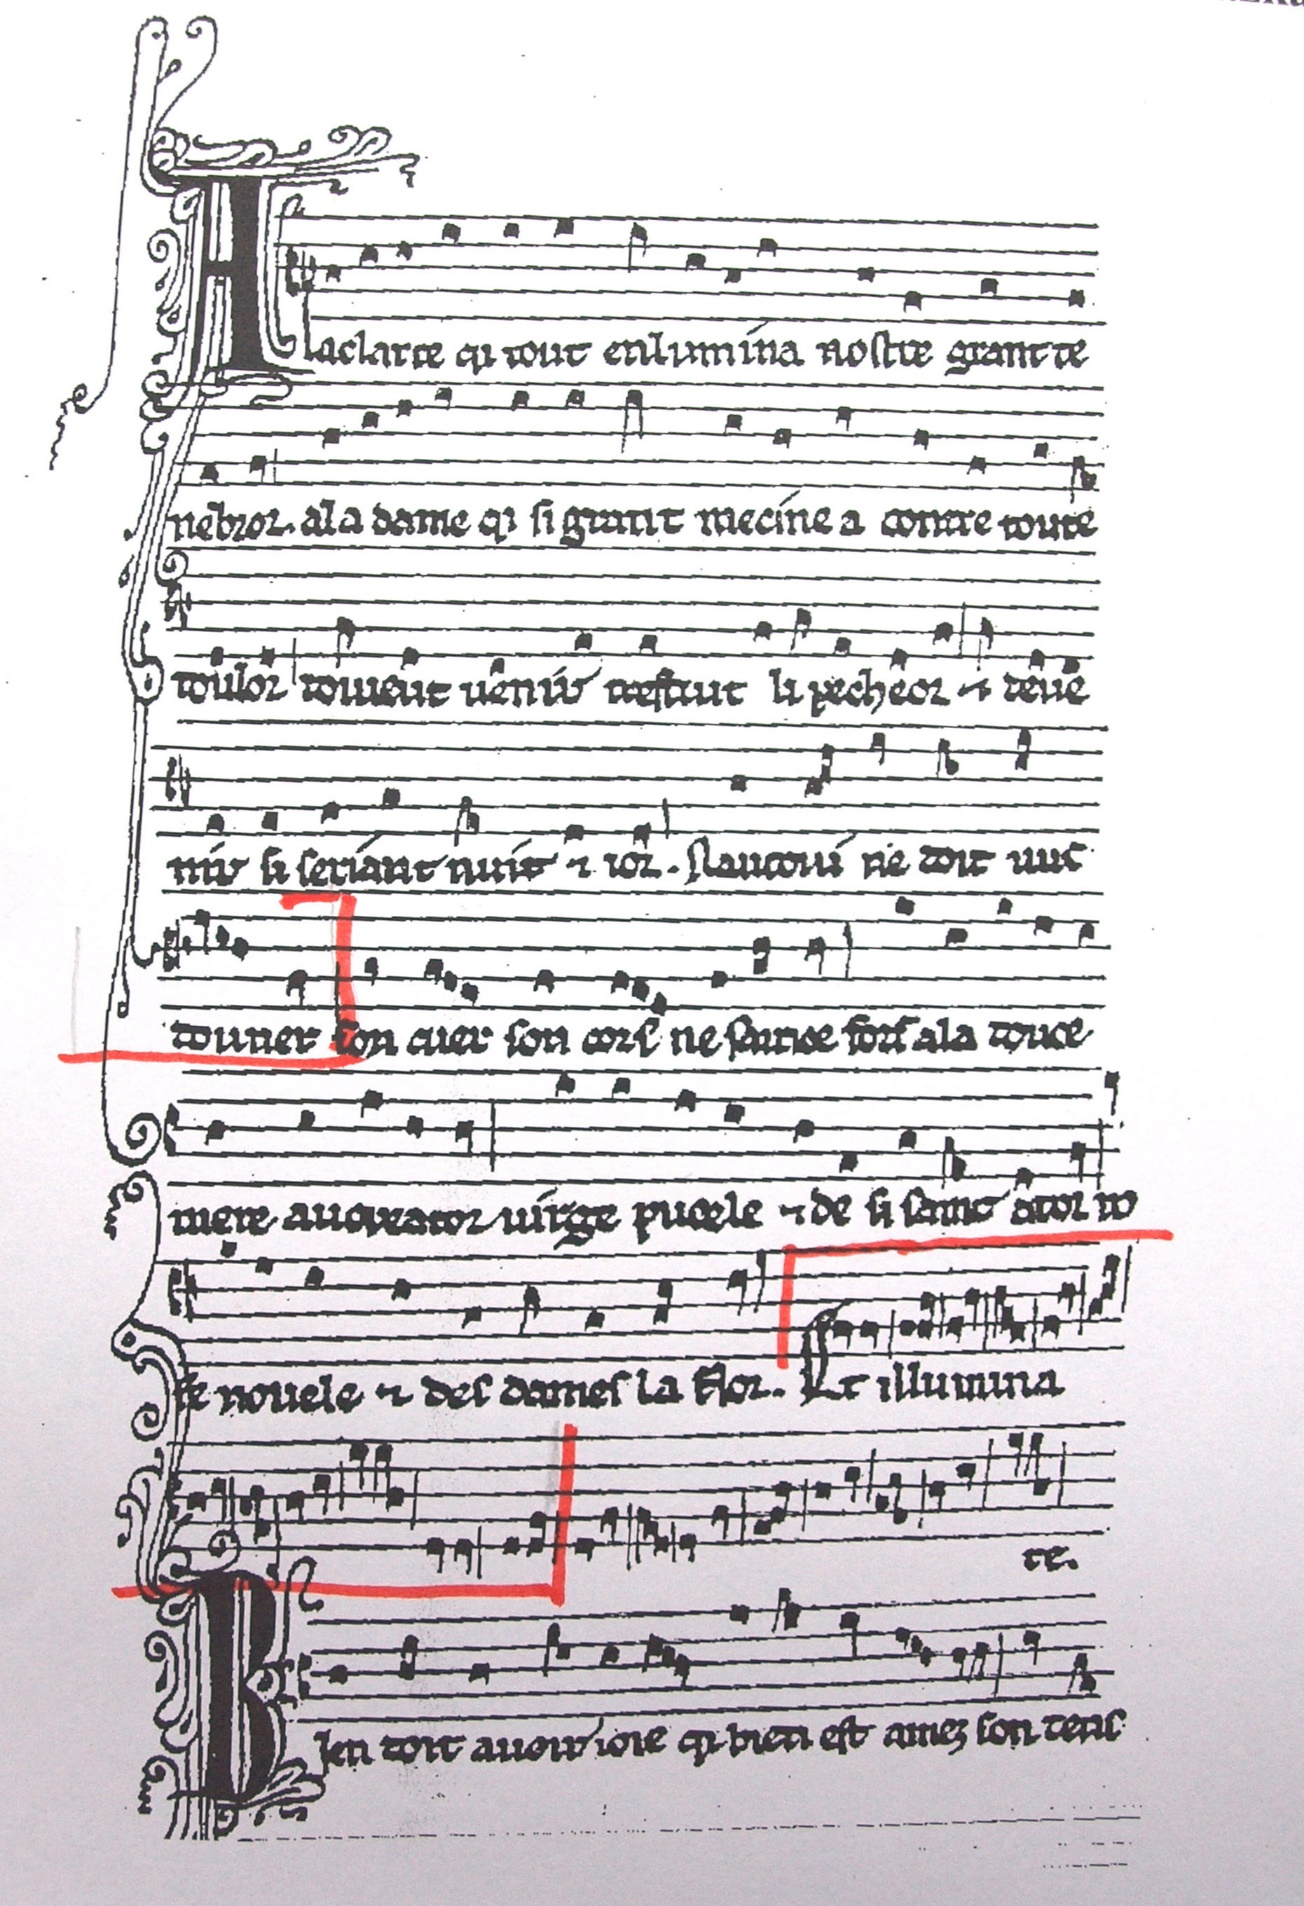 A laclarte qi tout enlumina nostre grant te
nebror. ala dame qi si grant mecine a contre toute
doulor doivent venir trestuit li pecheor ⁊ deve
nir si seriant nuit ⁊ ior. Nauroni ne doit nus
douner son cuer son cors ne fors ala douce
mere au creator virge pucele ⁊ de si saint ator ro
se novele ⁊ des dames la flor. Et illumina
re.
B ien doit avoir ioie qi bien est amez son tens